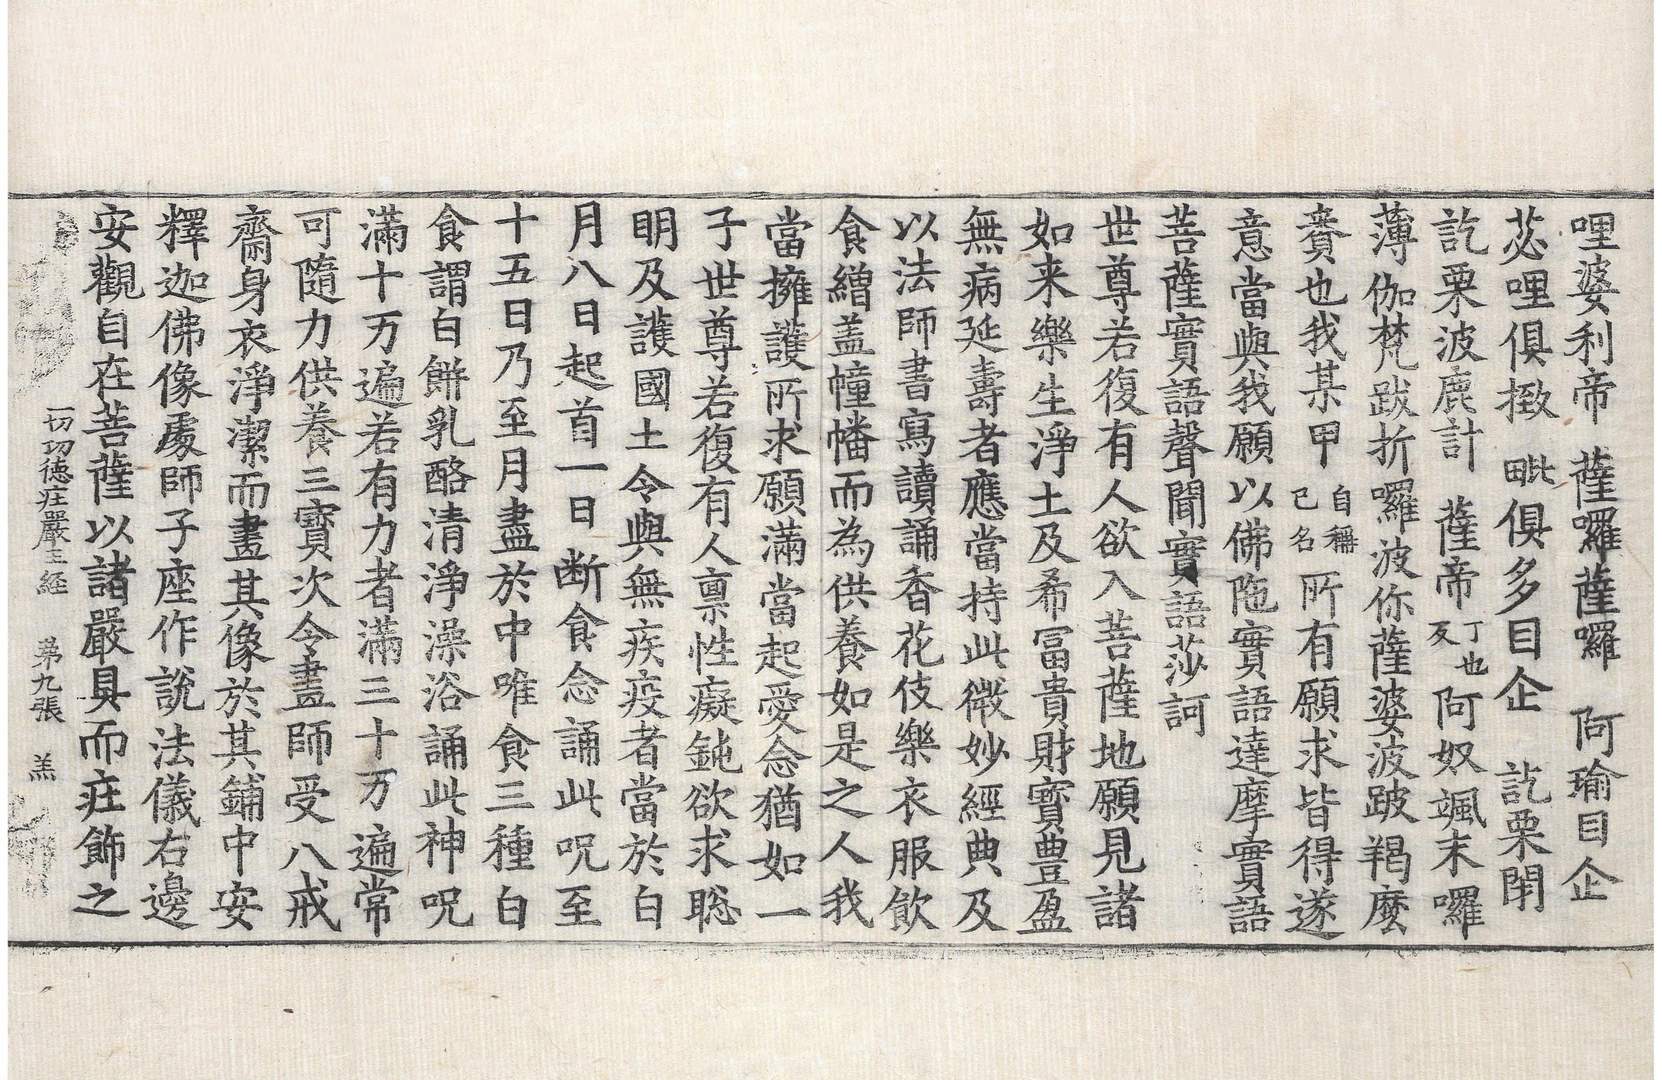 哩婆利帝　薩囉薩囉　阿瑜目企
苾哩俱掝　毗俱多目企　訖栗閇
訖栗波鹿計　薩帝丁也反阿奴颯末囉
薄伽梵跋折囉波你薩婆波跛羯麼
賽也我某甲自稱己名所有願求皆得遂
意當與我願以佛陁實語達摩實語
菩薩實語聲聞實語莎訶
世尊若復有人欲入菩薩地願見諸
如来樂生淨土及希冨貴財寶豊盈
無病延壽者應當持此微妙經典及
以法師書寫讀誦香花伎樂衣服飲
食繒盖幢幡而為供養如是之人我
當擁護所求願滿當起愛念猶如一
子世尊若復有人禀性癡鈍欲求聡
明及護國土令與無疾疫者當於白
月八日起首一日断食念誦此呪至
十五日乃至月盡於中唯食三種白
食謂白餅乳酪清淨澡浴誦此神呪
滿十万遍若有力者滿三十万遍常
可隨力供養三寳次令畫師受八戒
齋身衣淨潔而畫其像於其鋪中安
釋迦佛像處師子座作說法儀右邊
安觀自在菩薩以諸嚴具而庄飾之
一切功德庄嚴王経　第九張　羔